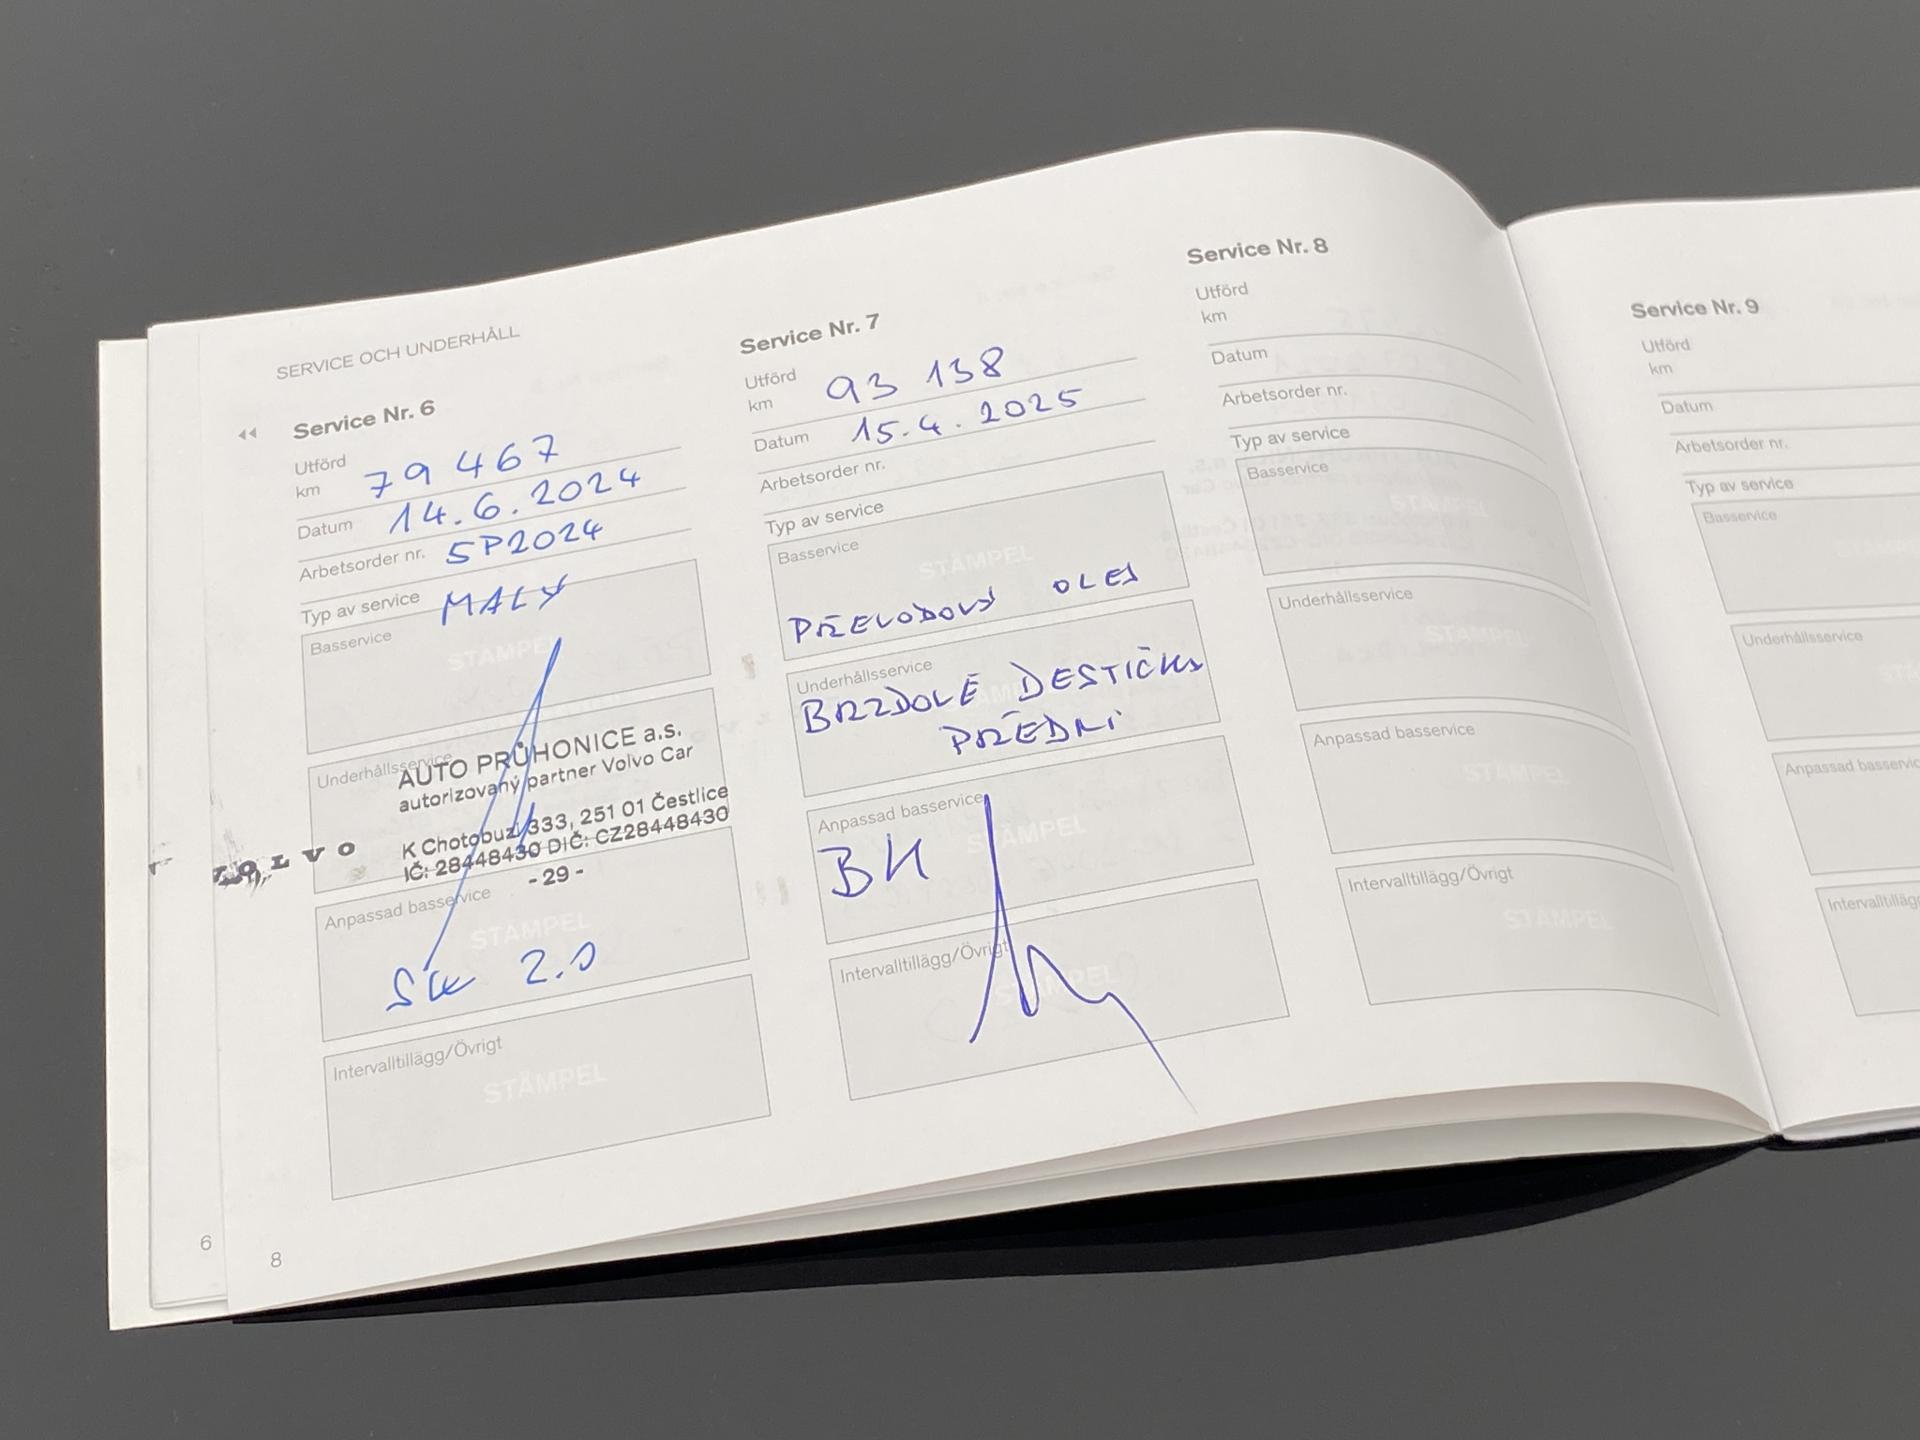 SERVICE OCH UNDERHÅLL
Service Nr. 6
Utförd
km 79 467
Datum 14.6.2024
Arbetsorder nr. SP2024
Typ av service MALÝ
Basservice
STÄMPEL
Underhållsservice
AUTO PRŮHONICE a.s.
autorizovaný partner Volvo Car
K Chotobuzi 333, 251 01 Čestlice
IČ: 28448430 DIČ: CZ28448430
- 29 -
VOLVO
Anpassad basservice
STÄMPEL
2.0
Intervalltillägg/Övrigt
STÄMPEL
8
6
Service Nr. 7
Utförd
km 93 138
Datum 15.4.2025
Arbetsorder nr.
Typ av service
Basservice
STÄMPEL
PŘEVODOVÝ OLEJ
Underhållsservice
STÄMPEL
BRZDOVÉ DESTIČKY
PŘEDNÍ
Anpassad basservice
STÄMPEL
BK
Intervalltillägg/Övrigt
STÄMPEL
Service Nr. 8
Utförd
km
Datum
Arbetsorder nr.
Typ av service
Basservice
STÄMPEL
Underhållsservice
STÄMPEL
Anpassad basservice
STÄMPEL
Intervalltillägg/Övrigt
STÄMPEL
Service Nr. 9
Utförd
km
Datum
Arbetsorder nr.
Typ av service
Basservice
Underhållsservice
Anpassad